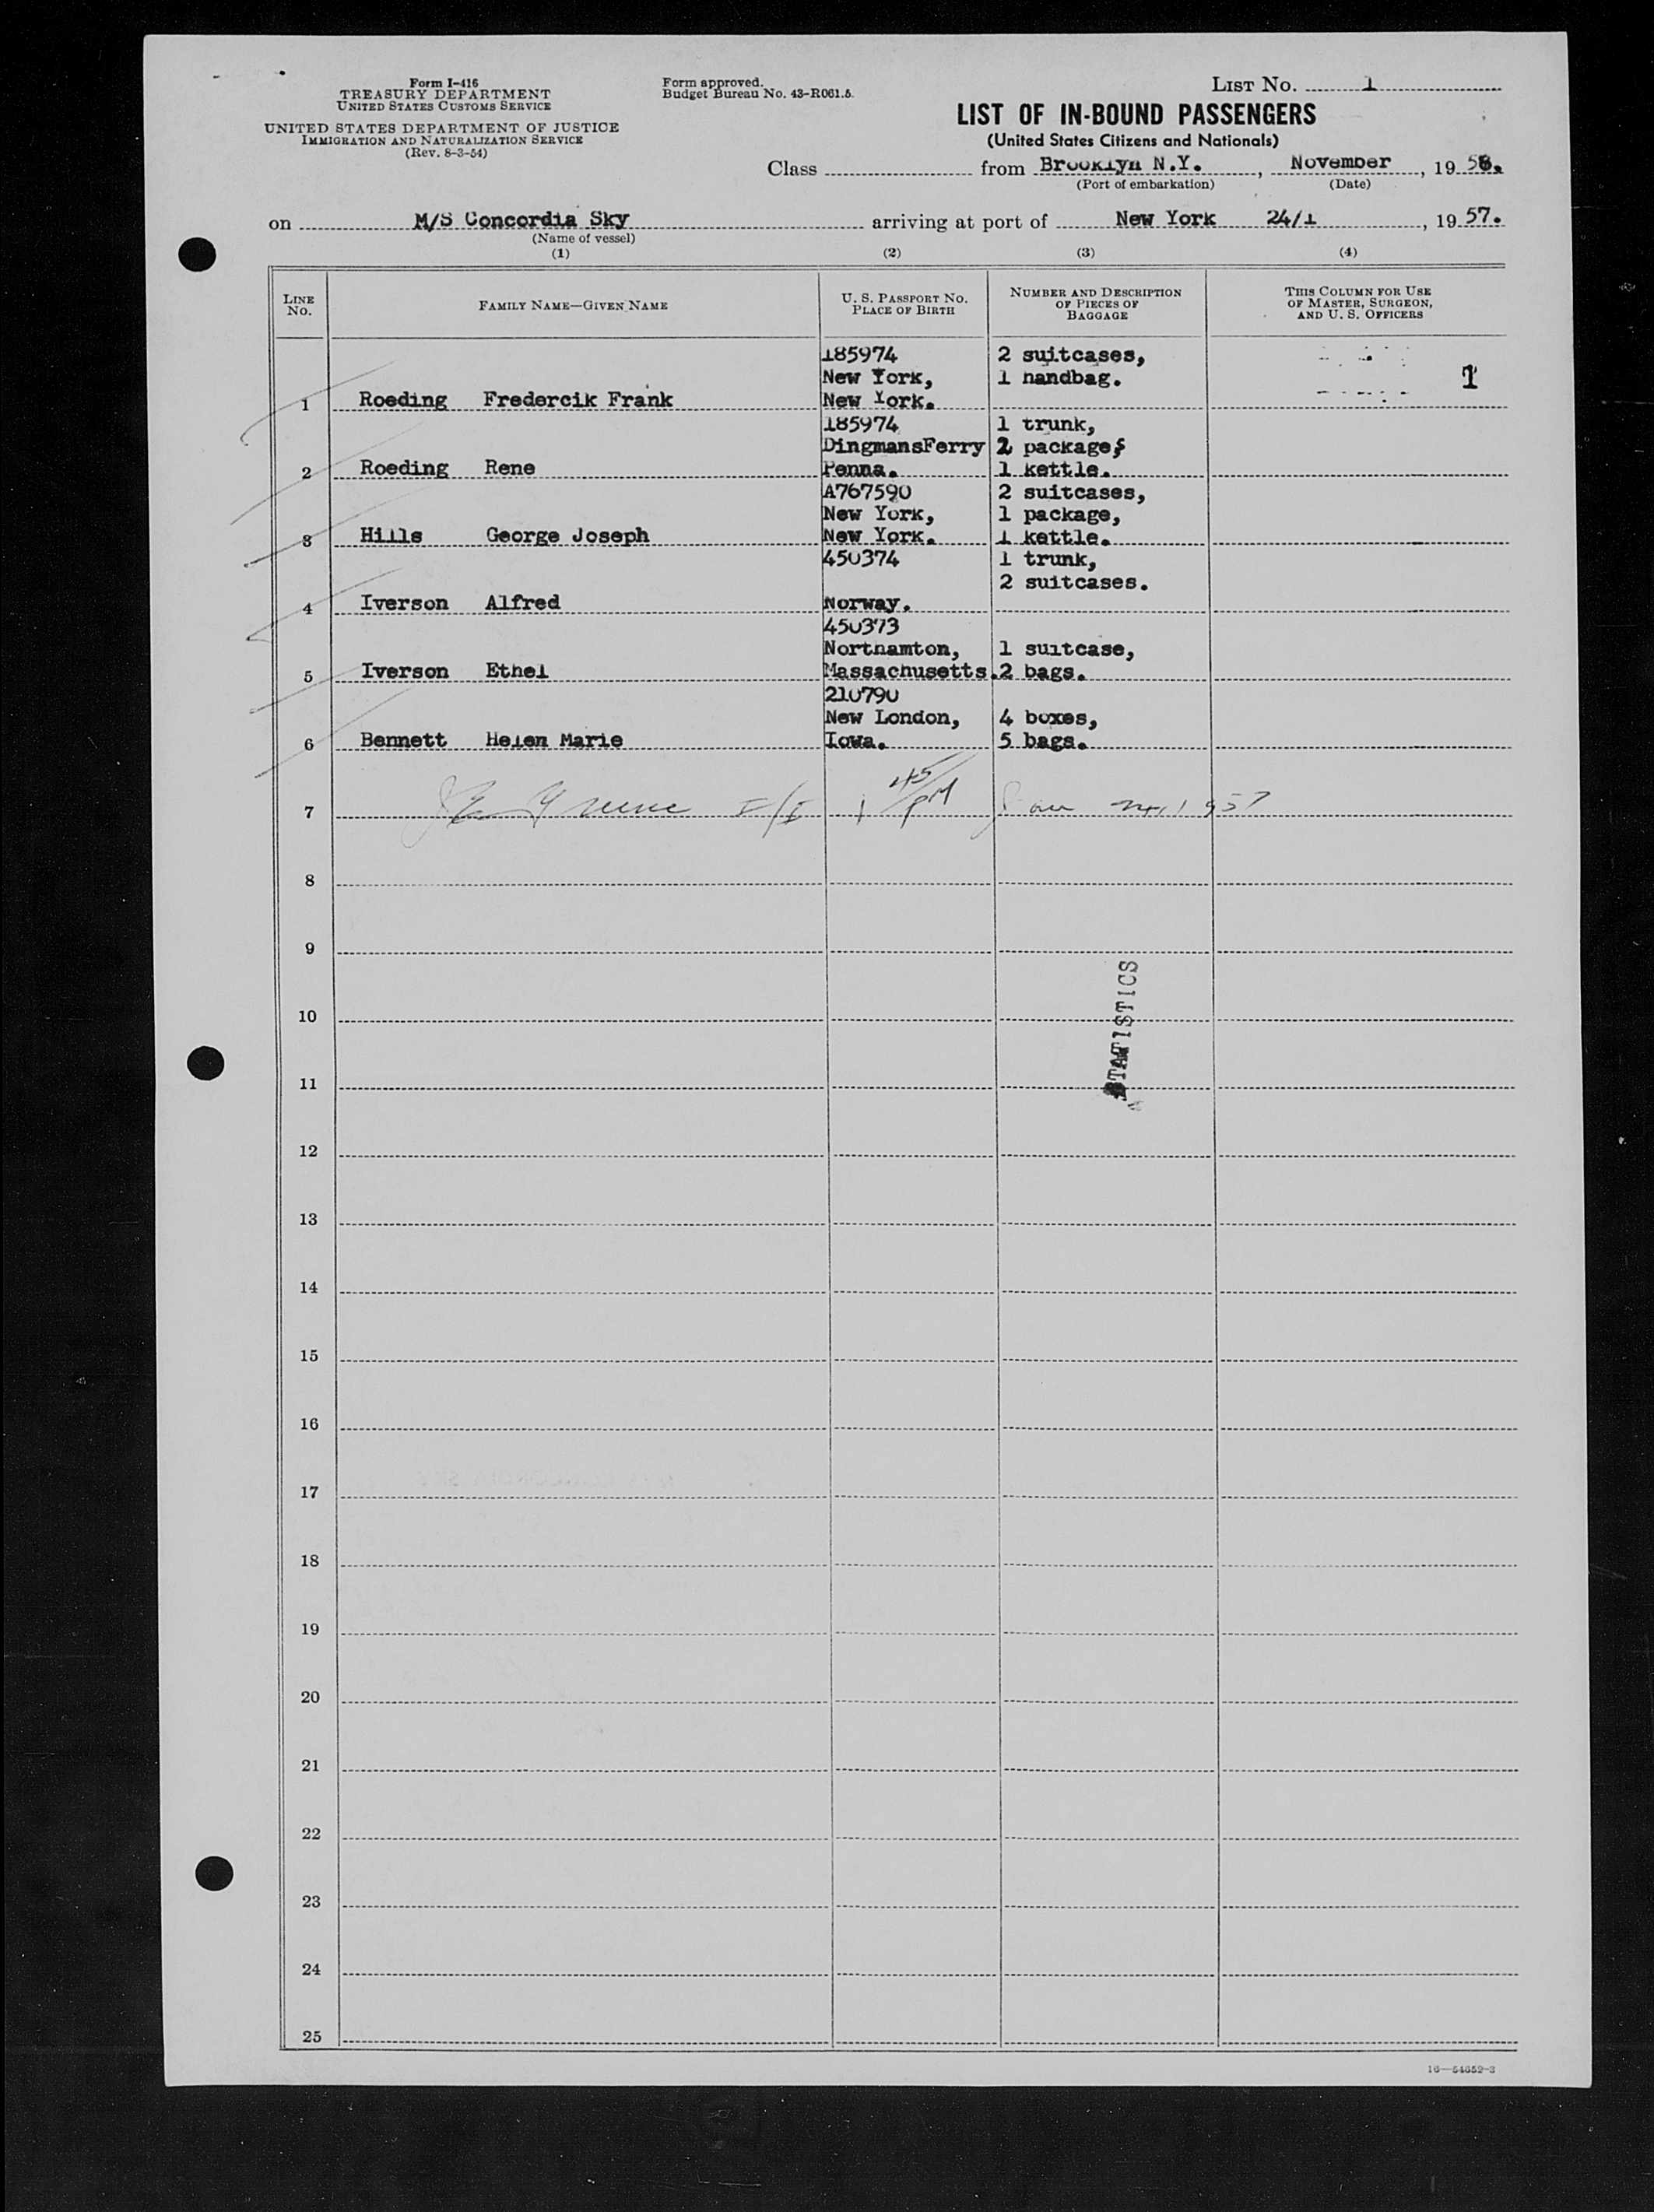 Form I-416
TREASURY DEPARTMENT
UNITED STATES CUSTOMS SERVICE
UNITED STATES DEPARTMENT OF JUSTICE
IMMIGRATION AND NATURALIZATION SERVICE
(Rev. 8-3-54)
Form approved.
Budget Bureau No. 43-R061.5.
LIST No. 1
LIST OF IN-BOUND PASSENGERS
(United States Citizens and Nationals)
Class from Brooklyn N.Y., November, 19 56.
(Port of embarkation) (Date)
on M/S Concordia Sky arriving at port of New York 24/1, 19 57.
(Name of vessel)
(1) (2) (3) (4)
LINE No. FAMILY NAME—GIVEN NAME U. S. PASSPORT NO. PLACE OF BIRTH NUMBER AND DESCRIPTION OF PIECES OF BAGGAGE THIS COLUMN FOR USE OF MASTER, SURGEON, AND U. S. OFFICERS
185974 2 suitcases,
New York, 1 handbag. 1
1 Roeding Fredercik Frank New York.
185974 1 trunk,
DingmansFerry 2 packages
2 Roeding Rene Penna. 1 kettle.
A767590 2 suitcases,
New York, 1 package,
3 Hills George Joseph New York. 1 kettle.
450374 1 trunk,
2 suitcases.
4 Iverson Alfred Norway.
450373
Northamton, 1 suitcase,
5 Iverson Ethel Massachusetts. 2 bags.
210790
New London, 4 boxes,
6 Bennett Helen Marie Iowa. 5 bags.
7 I/I 1 45/PM Jan 24, 1957
8
9
STATISTICS
10
11
12
13
14
15
16
17
18
19
20
21
22
23
24
25
16—54652-3